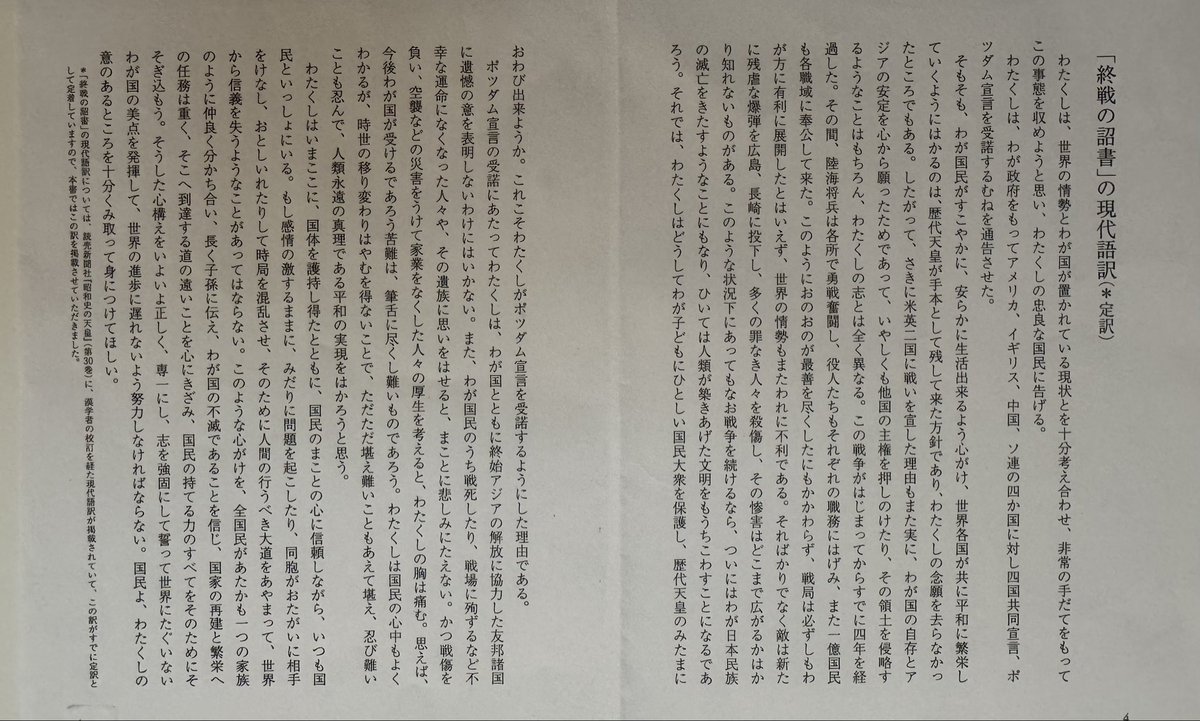 「終戦の詔書」の現代語訳(＊定訳)
わたくしは、世界の情勢とわが国が置かれている現状とを十分考え合わせ、非常の手だてをもって
この事態を収めようと思い、わたくしの忠良な国民に告げる。
わたくしは、わが政府をもってアメリカ、イギリス、中国、ソ連の四か国に対し四国共同宣言、ポ
ツダム宣言を受諾するむねを通告させた。
そもそも、わが国民がすこやかに、安らかに生活出来るよう心がけ、世界各国が共に平和に繁栄し
ていくようにはかるのは、歴代天皇が手本として残して来た方針であり、わたくしの念願を去らなかっ
たところでもある。したがって、さきに米英二国に戦いを宣した理由もまた実に、わが国の自存とア
ジアの安定を心から願ったためであって、いやしくも他国の主権を押しのけたり、その領土を侵略す
るようなことはもちろん、わたくしの志とは全く異なる。この戦争がはじまってからすでに四年を経
過した。その間、陸海将兵は各所で勇戦奮闘し、役人たちもそれぞれの職務にはげみ、また一億国民
も各職域に奉公して来た。このようにおのおのが最善を尽くしたにもかかわらず、戦局は必ずしもわ
が方に有利に展開したとはいえず、世界の情勢もまたわれに不利である。そればかりでなく敵は新た
に残虐な爆弾を広島、長崎に投下し、多くの罪なき人々を殺傷し、その惨害はどこまで広がるかはか
り知れないものがある。このような状況下にあってもなお戦争を続けるなら、ついにはわが日本民族
の滅亡をきたすようなことにもなり、ひいては人類が築きあげた文明をもうちこわすことになるであ
ろう。それでは、わたくしはどうしてわが子どもにひとしい国民大衆を保護し、歴代天皇のみたまに
おわび出来ようか。これこそわたくしがポツダム宣言を受諾するようにした理由である。
ポツダム宣言の受諾にあたってわたくしは、わが国とともに終始アジアの解放に協力した友邦諸国
に遺憾の意を表明しないわけにはいかない。また、わが国民のうち戦死したり、戦場に殉ずるなど不
幸な運命になくなった人々や、その遺族に思いをはせると、まことに悲しみにたえない。かつ戦傷を
負い、空襲などの災害をうけて家業をなくした人々の厚生を考えると、わたくしの胸は痛む。思えば、
今後わが国が受けるであろう苦難は、筆舌に尽くし難いものであろう。わたくしは国民の心中もよく
わかるが、時世の移り変わりはやむを得ないことで、ただただ堪え難いこともあえて堪え、忍び難い
ことも忍んで、人類永遠の真理である平和の実現をはかろうと思う。
わたくしはいまここに、国体を護持し得たとともに、国民のまことの心に信頼しながら、いつも国
民といっしょにいる。もし感情の激するままに、みだりに問題を起こしたり、同胞がおたがいに相手
をけなし、おとしいれたりして時局を混乱させ、そのために人間の行うべき大道をあやまって、世界
から信義を失うようなことがあってはならない。このような心がけを、全国民があたかも一つの家族
のように仲良く分かち合い、長く子孫に伝え、わが国の不滅であることを信じ、国家の再建と繁栄へ
の任務は重く、そこへ到達する道の遠いことを心にきざみ、国民の持てる力のすべてをそのためにそ
そぎ込もう。そうした心構えをいよいよ正しく、専一にし、志を強固にして誓って世界にたぐいない
わが国の美点を発揮して、世界の進歩に遅れないよう努力しなければならない。国民よ、わたくしの
意のあるところを十分くみ取って身につけてほしい。
＊「終戦の詔書」の現代語訳については、読売新聞社『昭和史の天皇』(第30巻)に、漢学者の校訂を経た現代語訳が掲載されていて、この訳がすでに定訳と
して定着していますので、本書ではこの訳を掲載させていただきました。